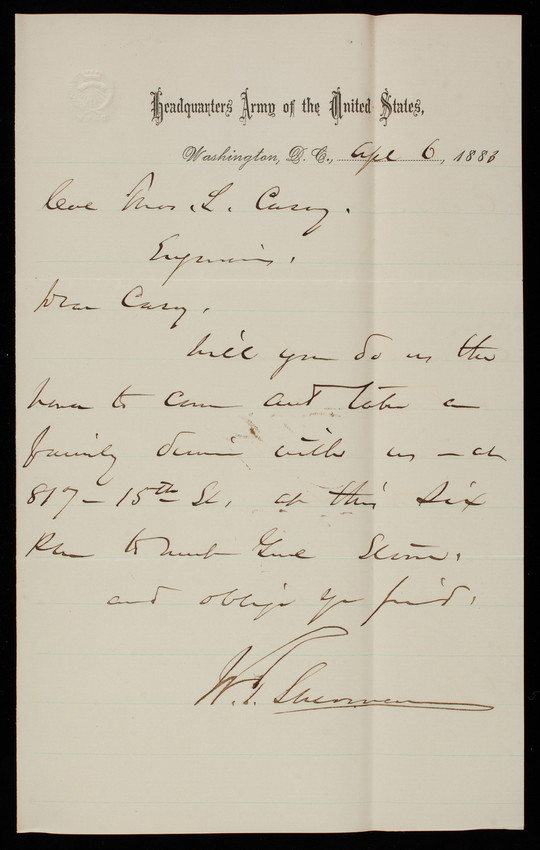 Headquarters Army of the United States,
Washington, D. C., Apl 6, 1883
Thos. L. Casey.
Engineers.
Dear Casey,
Will you do us the
honor to come and take a
family dinner with us - at
817 - 15th St, at this six
PM to meet Genl Stone.
and oblige yr friend,
W. T. Sherman